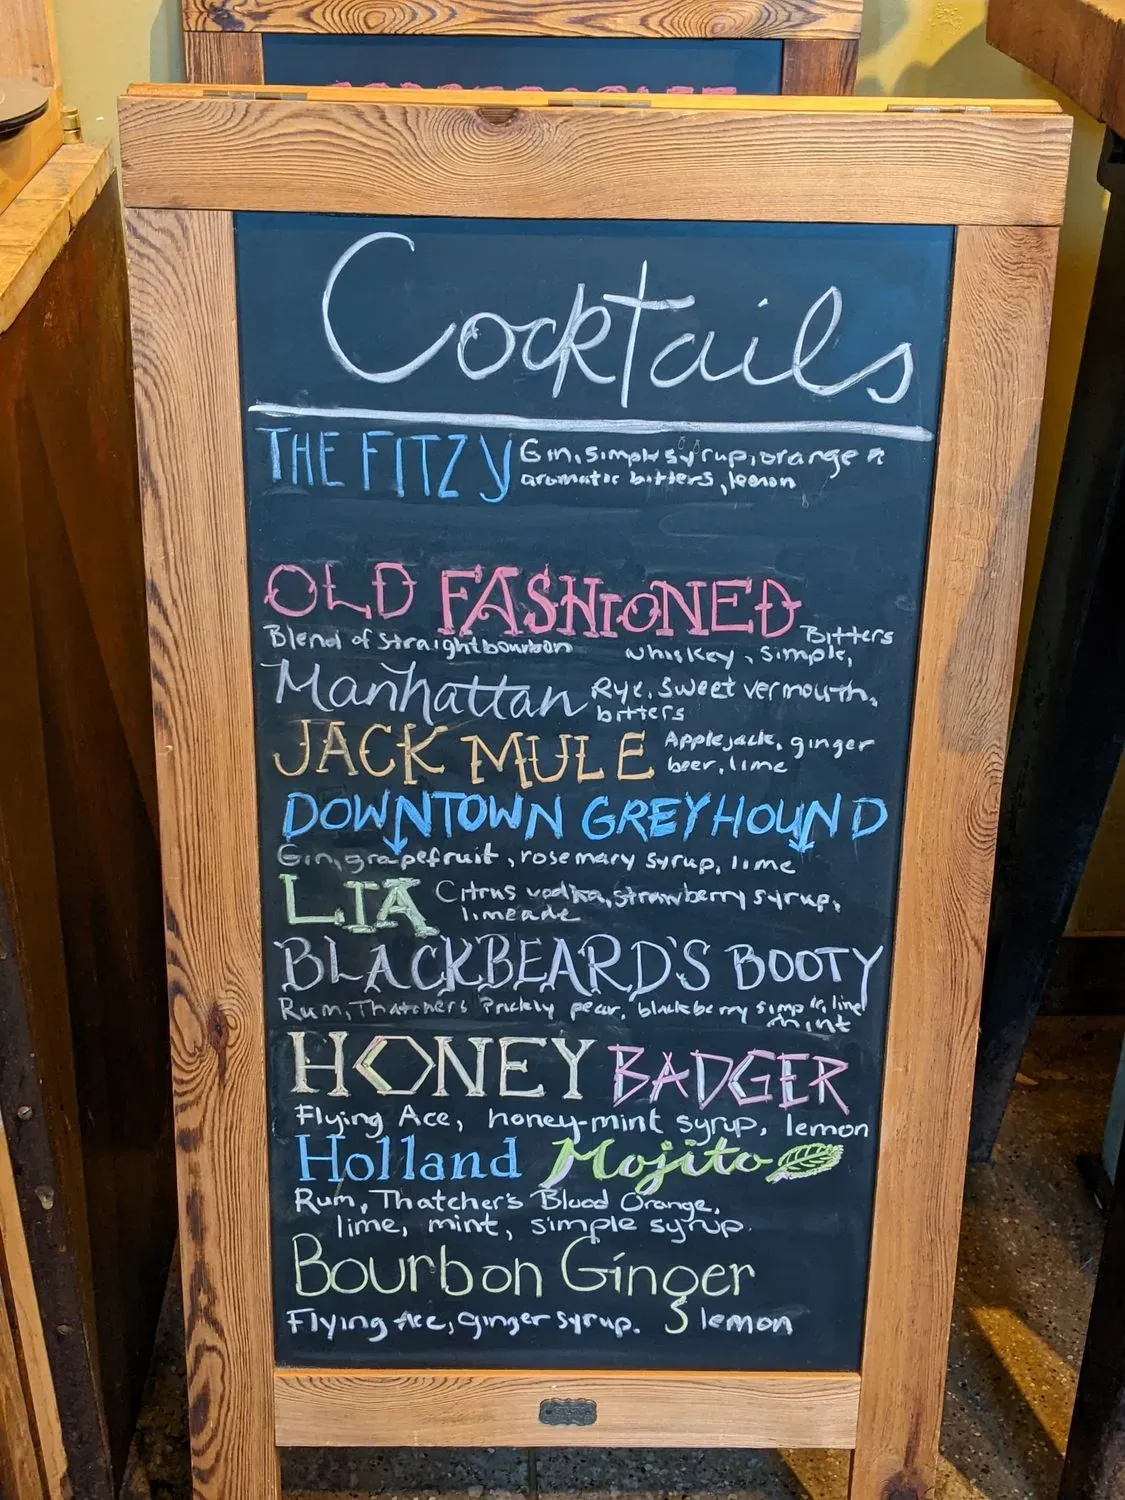 Cocktails
THE FITZY Gin, simple syrup, orange &
aromatic bitters, lemon
OLD FASHIONED
Bitters
Blend of straight bourbon whiskey, simple,
Manhattan Rye, sweet vermouth,
bitters
JACK MULE Applejack, ginger
beer, lime
DOWNTOWN GREYHOUND
Gin, grapefruit, rosemary syrup, lime
LIA Citrus vodka, strawberry syrup,
limeade
BLACKBEARD'S BOOTY
Rum, Thatcher's Prickly pear, blackberry simple, lime
mint
HONEY BADGER
Flying Ace, honey-mint syrup, lemon
Holland Mojito
Rum, Thatcher's Blood Orange,
lime, mint, simple syrup.
Bourbon Ginger
Flying Ace, ginger syrup. lemon